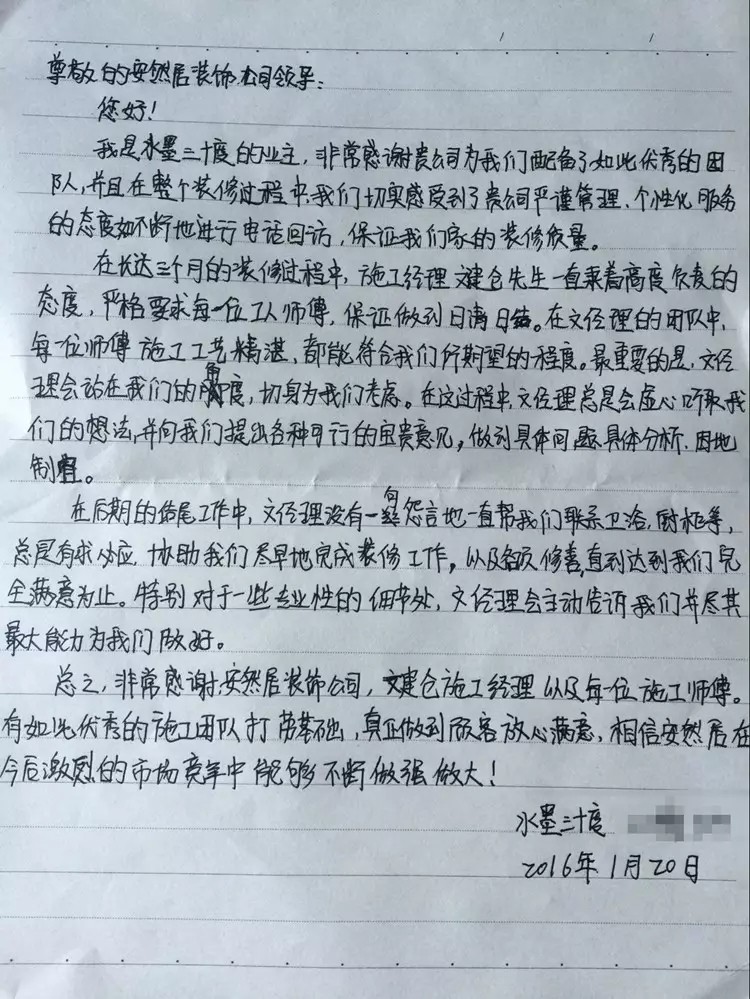 尊敬的安然居装饰公司领导:
您好!
我是水墨三十度的业主,非常感谢贵公司为我们配备了如此优秀的团
队,并且在整个装修过程中,我们切实感受到了贵公司严谨管理、个性化服务
的态度如不断地进行电话回访,保证我们家的装修质量。
在长达三个月的装修过程中,施工经理文建仓先生一直秉着高度负责的
态度,严格要求每一位工人师傅,保证做到日清日结。在文经理的团队中,
每一位师傅施工工艺精湛,都能符合我们所期望的程度。最重要的是,文经
理会站在我们的角度,切身为我们考虑。在这过程中,文经理总是会虚心听取我
们的想法,并向我们提出各种可行的宝贵意见,做到具体问题具体分析、因地
制宜。
在后期的结尾工作中,文经理没有一句怨言地一直帮我们联系卫浴,橱柜等,
总是有求必应,协助我们尽早地完成装修工作,以及修善,直到达到我们完
全满意为止。特别对于一些专业性的细节处,文经理会主动告诉我们并尽其
最大能力为我们做好。
总之,非常感谢安然居装饰公司,文建仓施工经理以及每一位施工师傅。
有如此优秀的施工团队打劳基础,真正做到顾客放心满意,相信安然居在
今后激烈的市场竞争中能够不断做强做大!
水墨三十度
2016年1月20日